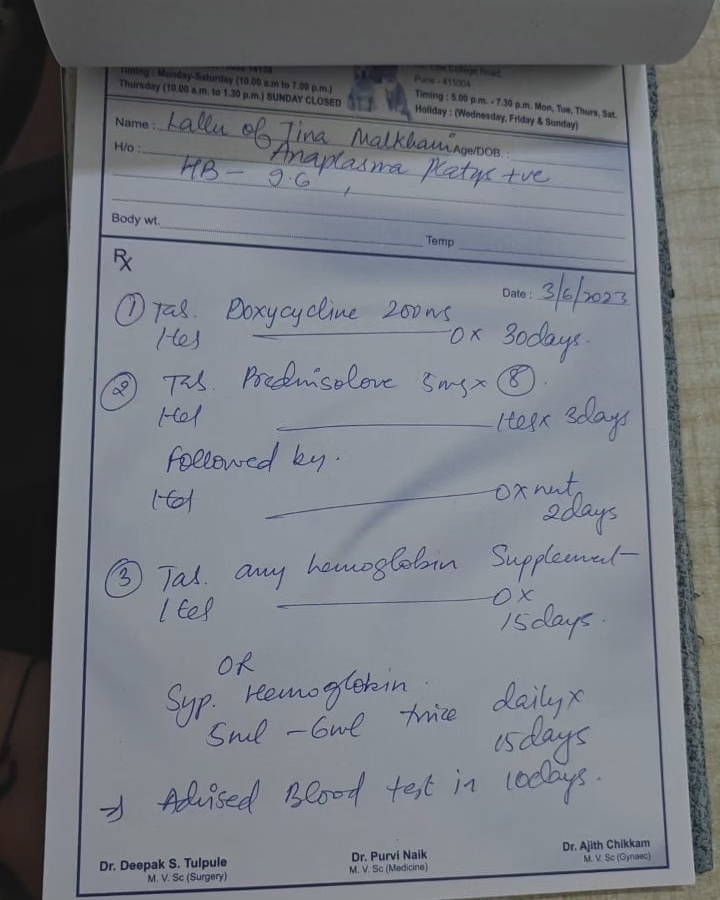 Timing : Monday-Saturday (10.00 a.m to 7.00 p.m.)
Thursday (10.00 a.m. to 1.30 p.m.) SUNDAY CLOSED
Pune - 411004
Timing : 5.00 p.m. - 7.30 p.m. Mon, Tue, Thurs, Sat.
Holiday : (Wednesday, Friday & Sunday)
Name : Lallu of Tina Malkhani Age/DOB. :
H/o : Anaplasma Platys +ve
HB - 9.6 ,
Body wt. Temp
Rx
Date : 3/6/2023
① Tab. Doxycycline 200mg
1tab — 0 x 30days.
② Tab. Prednisolove 5mg x ⑧.
1tab — 1tab x 3days
Followed by.
1tab — 0 x next
2days
③ Tab. any hemoglobin Supplement
1 tab — 0 x
15days.
OR
Syp. Hemoglobin.
5ml - 6ml twice daily x
15days
⇒ Advised Blood test in 10days.
Dr. Deepak S. Tulpule
M. V. Sc (Surgery)
Dr. Purvi Naik
M. V. Sc (Medicine)
Dr. Ajith Chikkam
M. V. Sc (Gynaec)